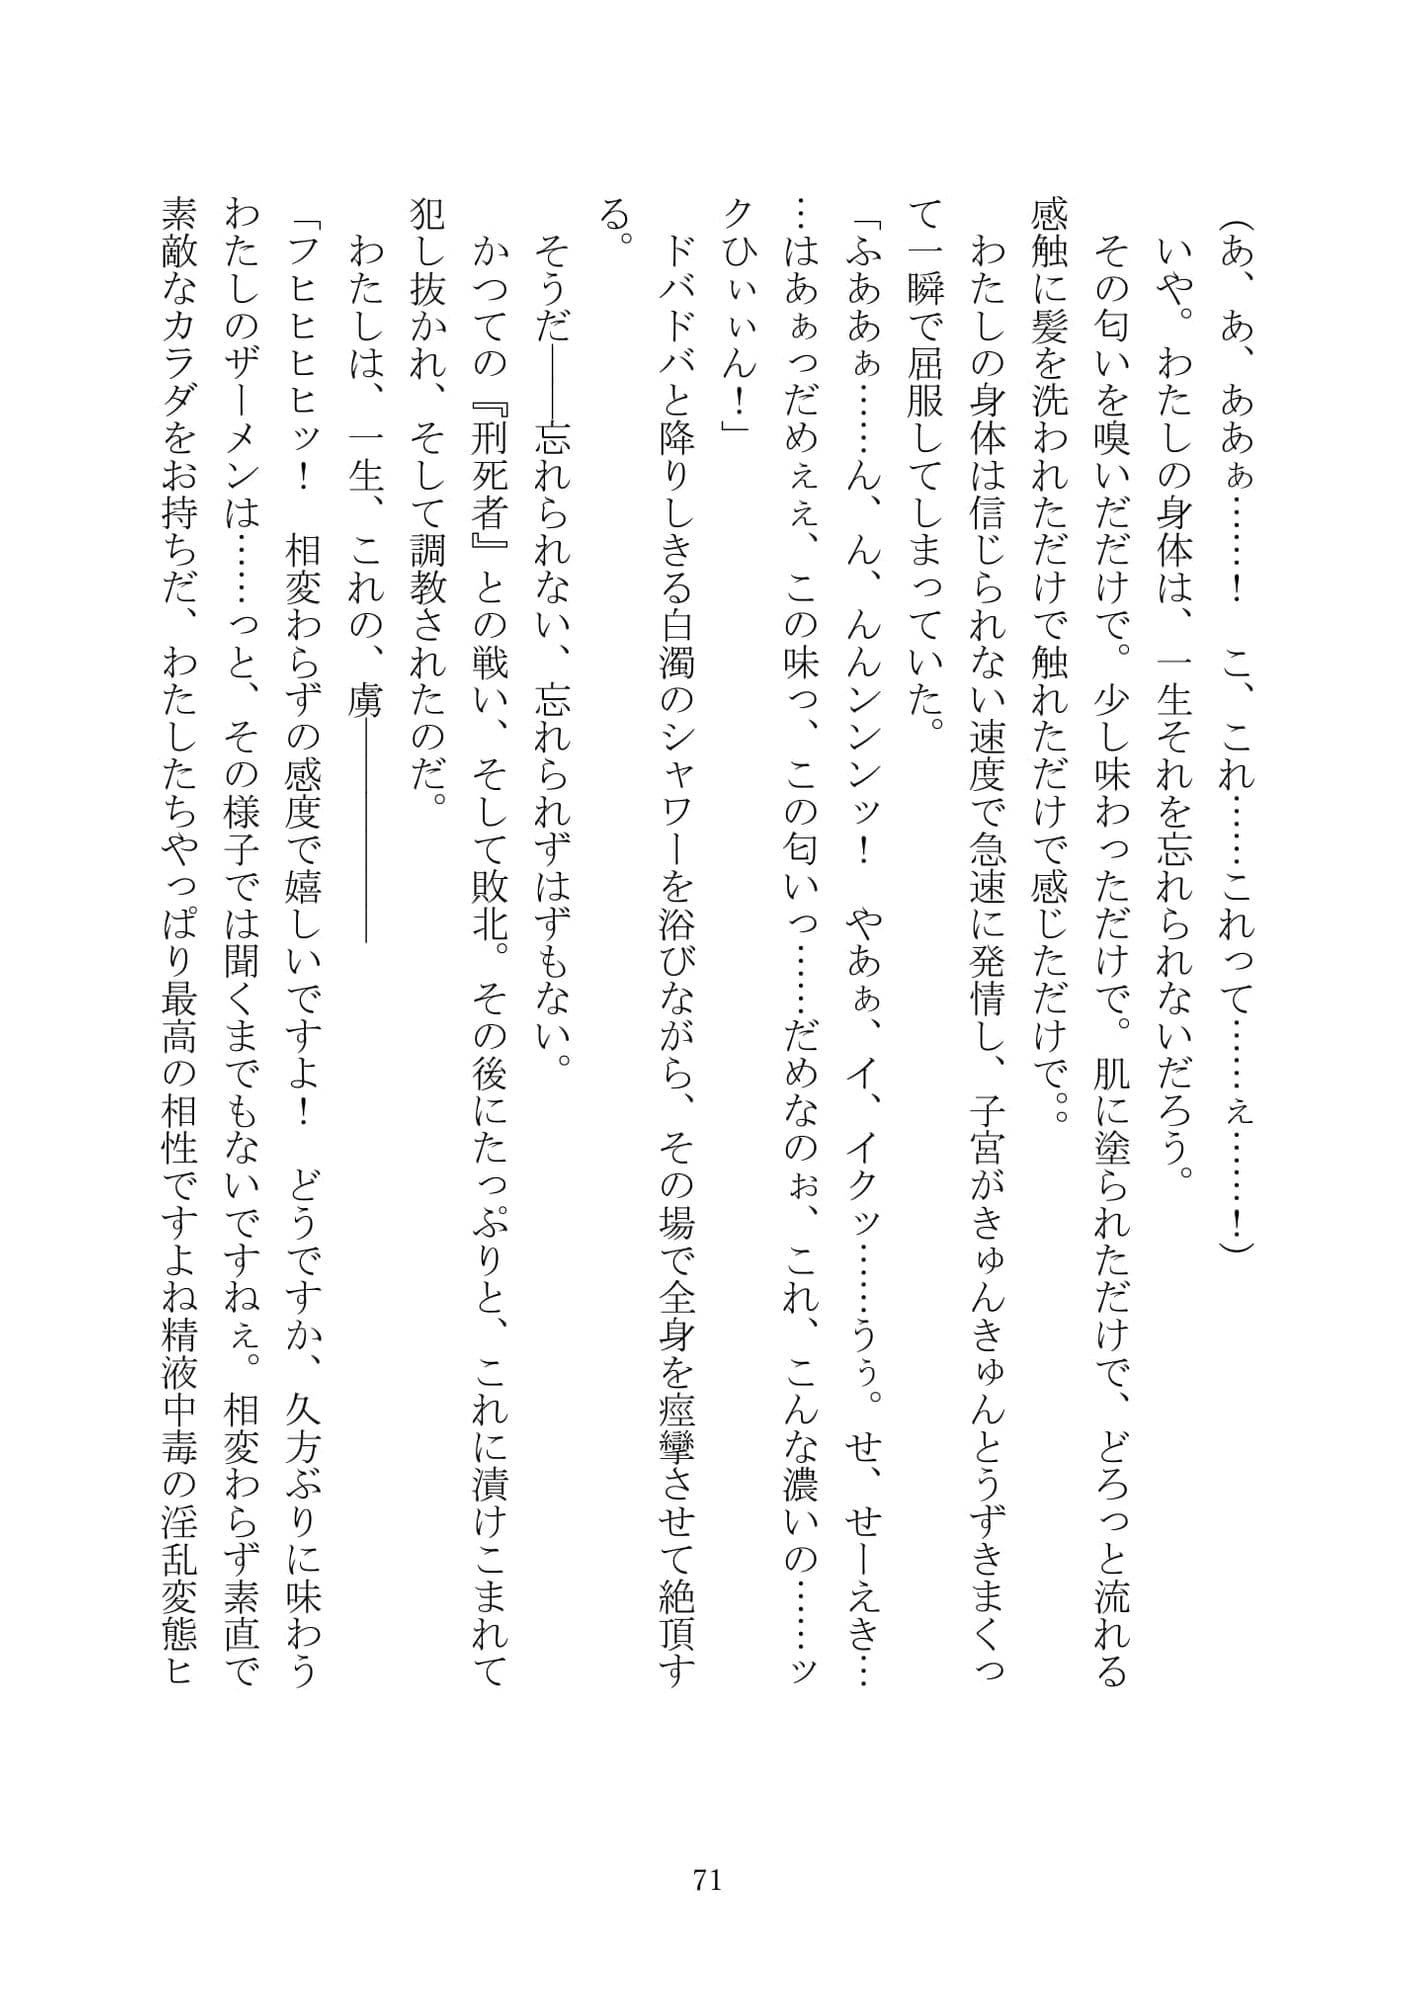 (あ、あ、ああぁ……！　こ、これ……これって……ぇ……！)
　いや。わたしの身体は、一生それを忘れられないだろう。
　その匂いを嗅いだだけで。少し味わっただけで。肌に塗られただけで、どろっと流れる
感触に髪を洗われただけで触れただけで感じただけで。。
　わたしの身体は信じられない速度で急速に発情し、子宮がきゅんきゅんとうずきまくっ
て一瞬で屈服してしまっていた。
「ふああぁ……ん、ん、んんンンンッ！　やあぁ、イ、イクッ……うぅ。せ、せーえき…
…はあぁっだめぇぇ、この味っ、この匂いっ……だめなのぉ、これ、こんな濃いの……ッ
クひぃぃん！」
　ドバドバと降りしきる白濁のシャワーを浴びながら、その場で全身を痙攣させて絶頂す
る。
　そうだ――忘れられない、忘れられずはずもない。
　かつての『刑死者』との戦い、そして敗北。その後にたっぷりと、これに漬けこまれて
犯し抜かれ、そして調教されたのだ。
　わたしは、一生、これの、虜――――――
「フヒヒヒヒッ！　相変わらずの感度で嬉しいですよ！　どうですか、久方ぶりに味わう
わたしのザーメンは……っと、その様子では聞くまでもないですねぇ。相変わらず素直で
素敵なカラダをお持ちだ、わたしたちやっぱり最高の相性ですよね精液中毒の淫乱変態ヒ
71